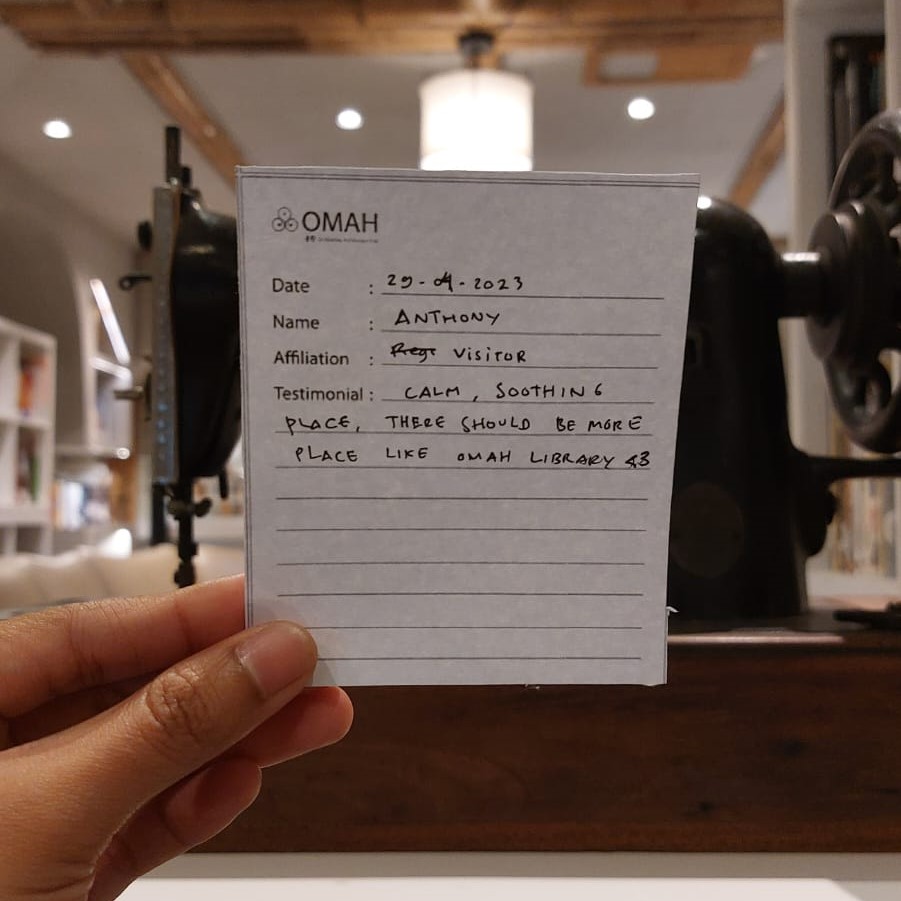 OMAH
Date : 29-04-2023
Name : ANTHONY
Affiliation : VISITOR
Testimonial : CALM, SOOTHING
PLACE, THERE SHOULD BE MORE
PLACE LIKE OMAH LIBRARY <3